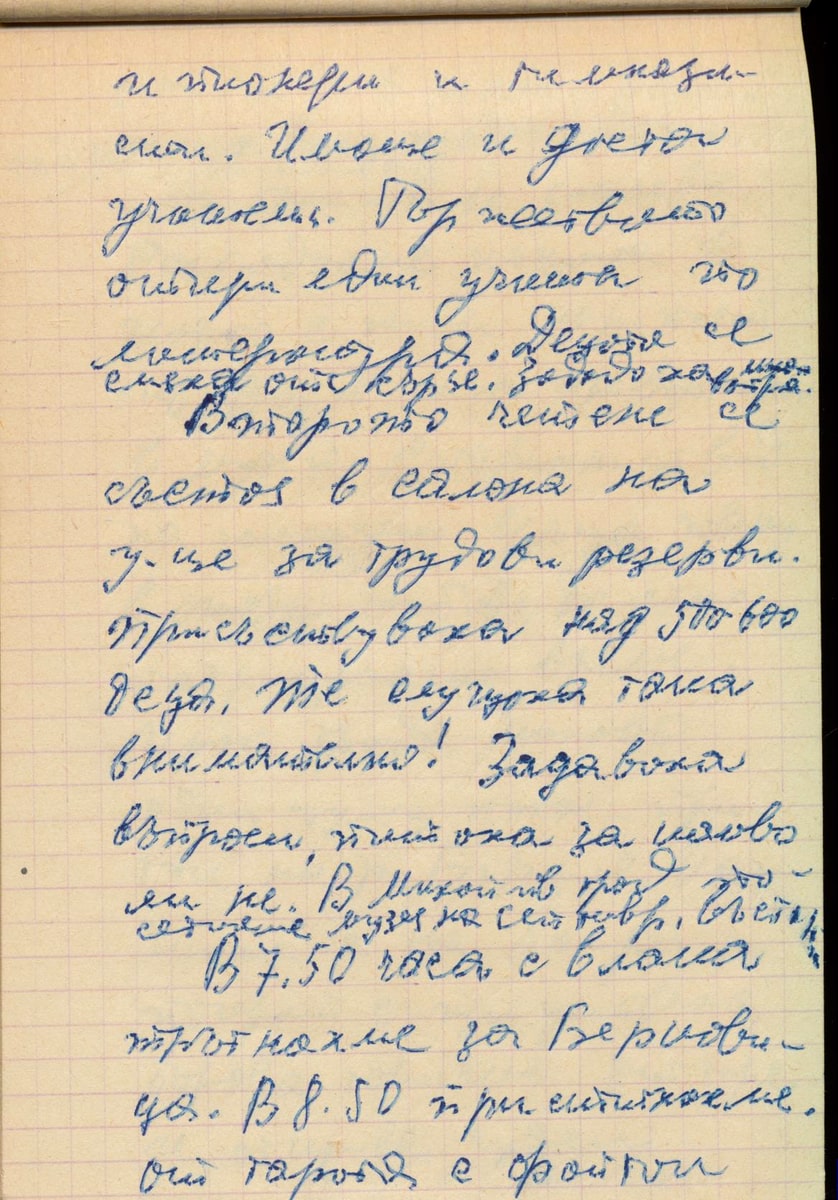 и пионери и гимнази-
сти. Имаше и доста
учители. Тържеството
откри един учител по
литература. Децата се
смяха от сърце. Зададоха много
въпр.
Второто четене се
състоя в салона на
у-ще за трудови резерви.
Присъствуваха над 500 600
деца. Те слушаха така
внимателно! Задаваха
въпроси, питаха за какво
ли не. В Михайловград по-
сетихме музея на септевр. въстан
В 7.50 часа с влака
тръгнахме за Беркови-
ца. В 8.50 пристигнахме.
От гарата с файтон